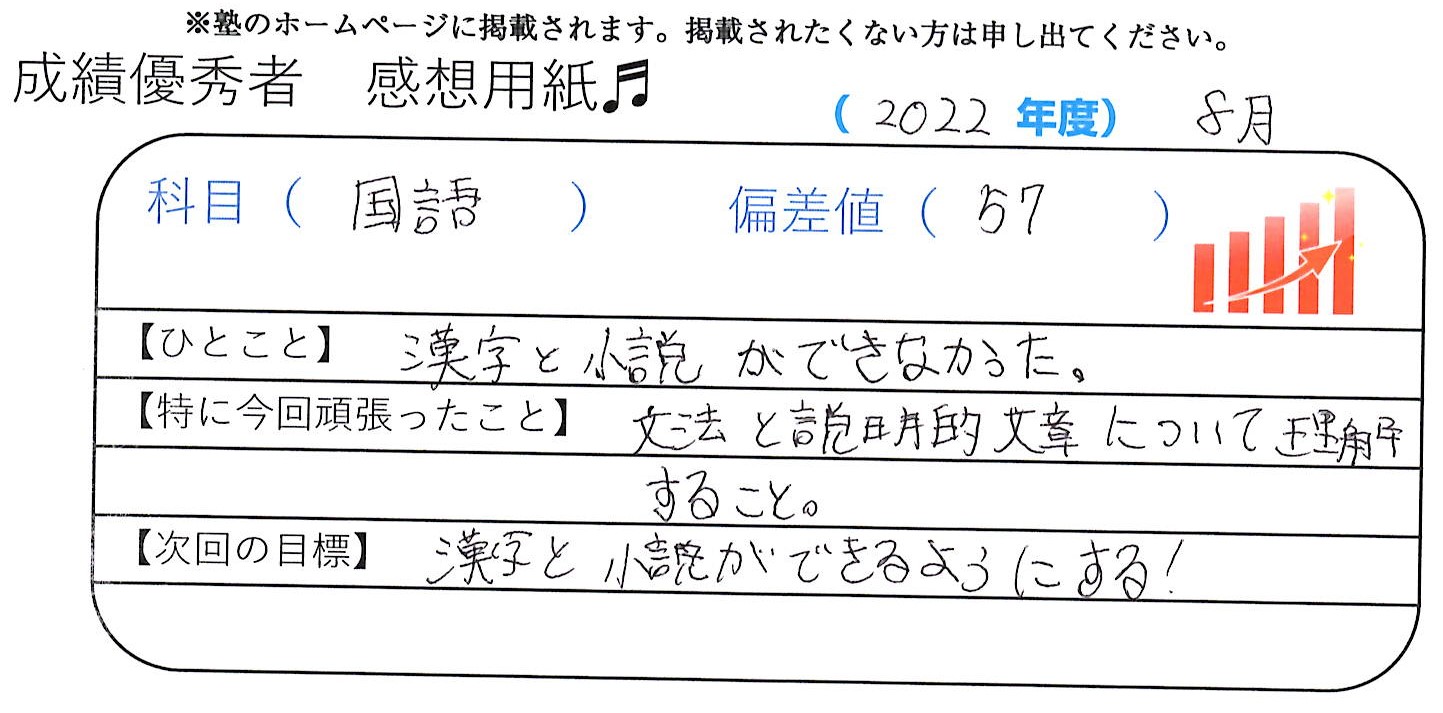 ※塾のホームページに掲載されます。掲載されたくない方は申し出てください。
成績優秀者　感想用紙♬
（2022年度）　8月
科目（　国語　）　偏差値（　57　）
【ひとこと】　漢字と小説ができなかった。
【特に今回頑張ったこと】　文法と説明的文章について理解
すること。
【次回の目標】　漢字と小説ができるようにする！